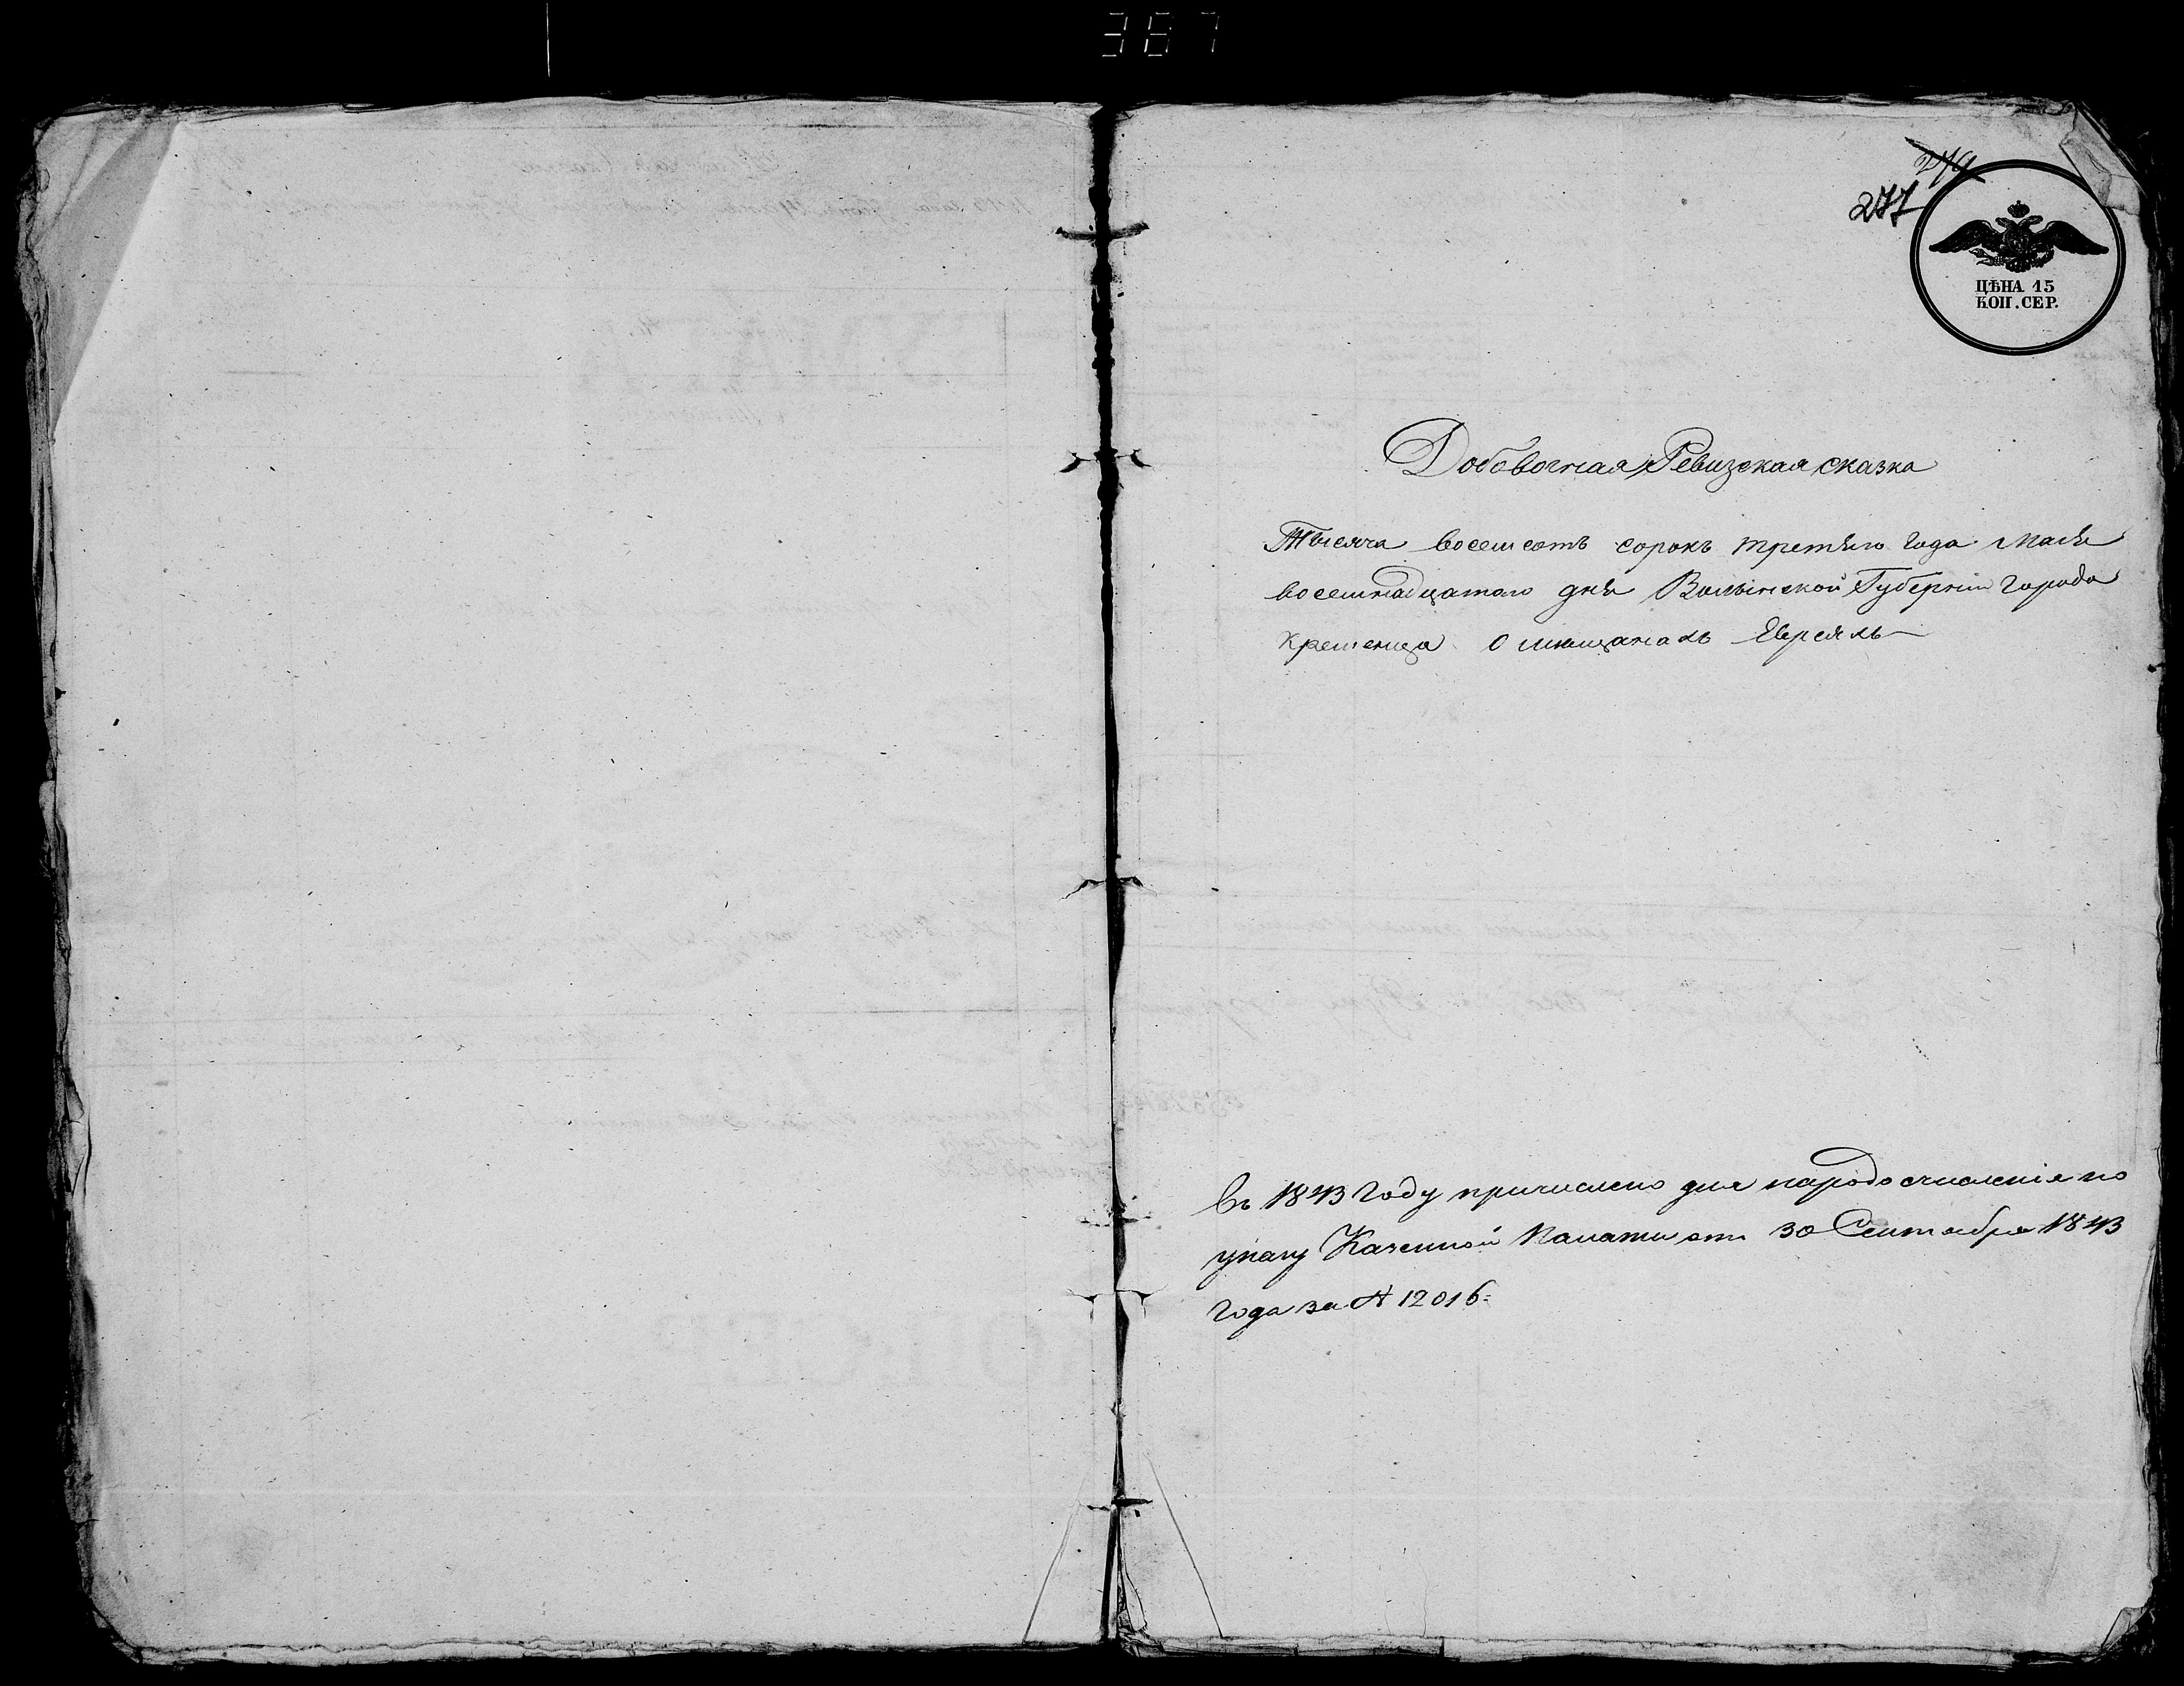 387
274
277
ЦѢНА 15
КОП. СЕР.
Добавочная Ревизская сказка
Тысяча восемсотъ сорокъ третьяго года мая
восемнадцатого дня Волынской Губерніи города
Кременца о мещанахъ Евреяхъ
Въ 1843 году причислено для народосчисленія по
указу Казенной Палаты отъ 30 Сентября 1843
года за № 12016